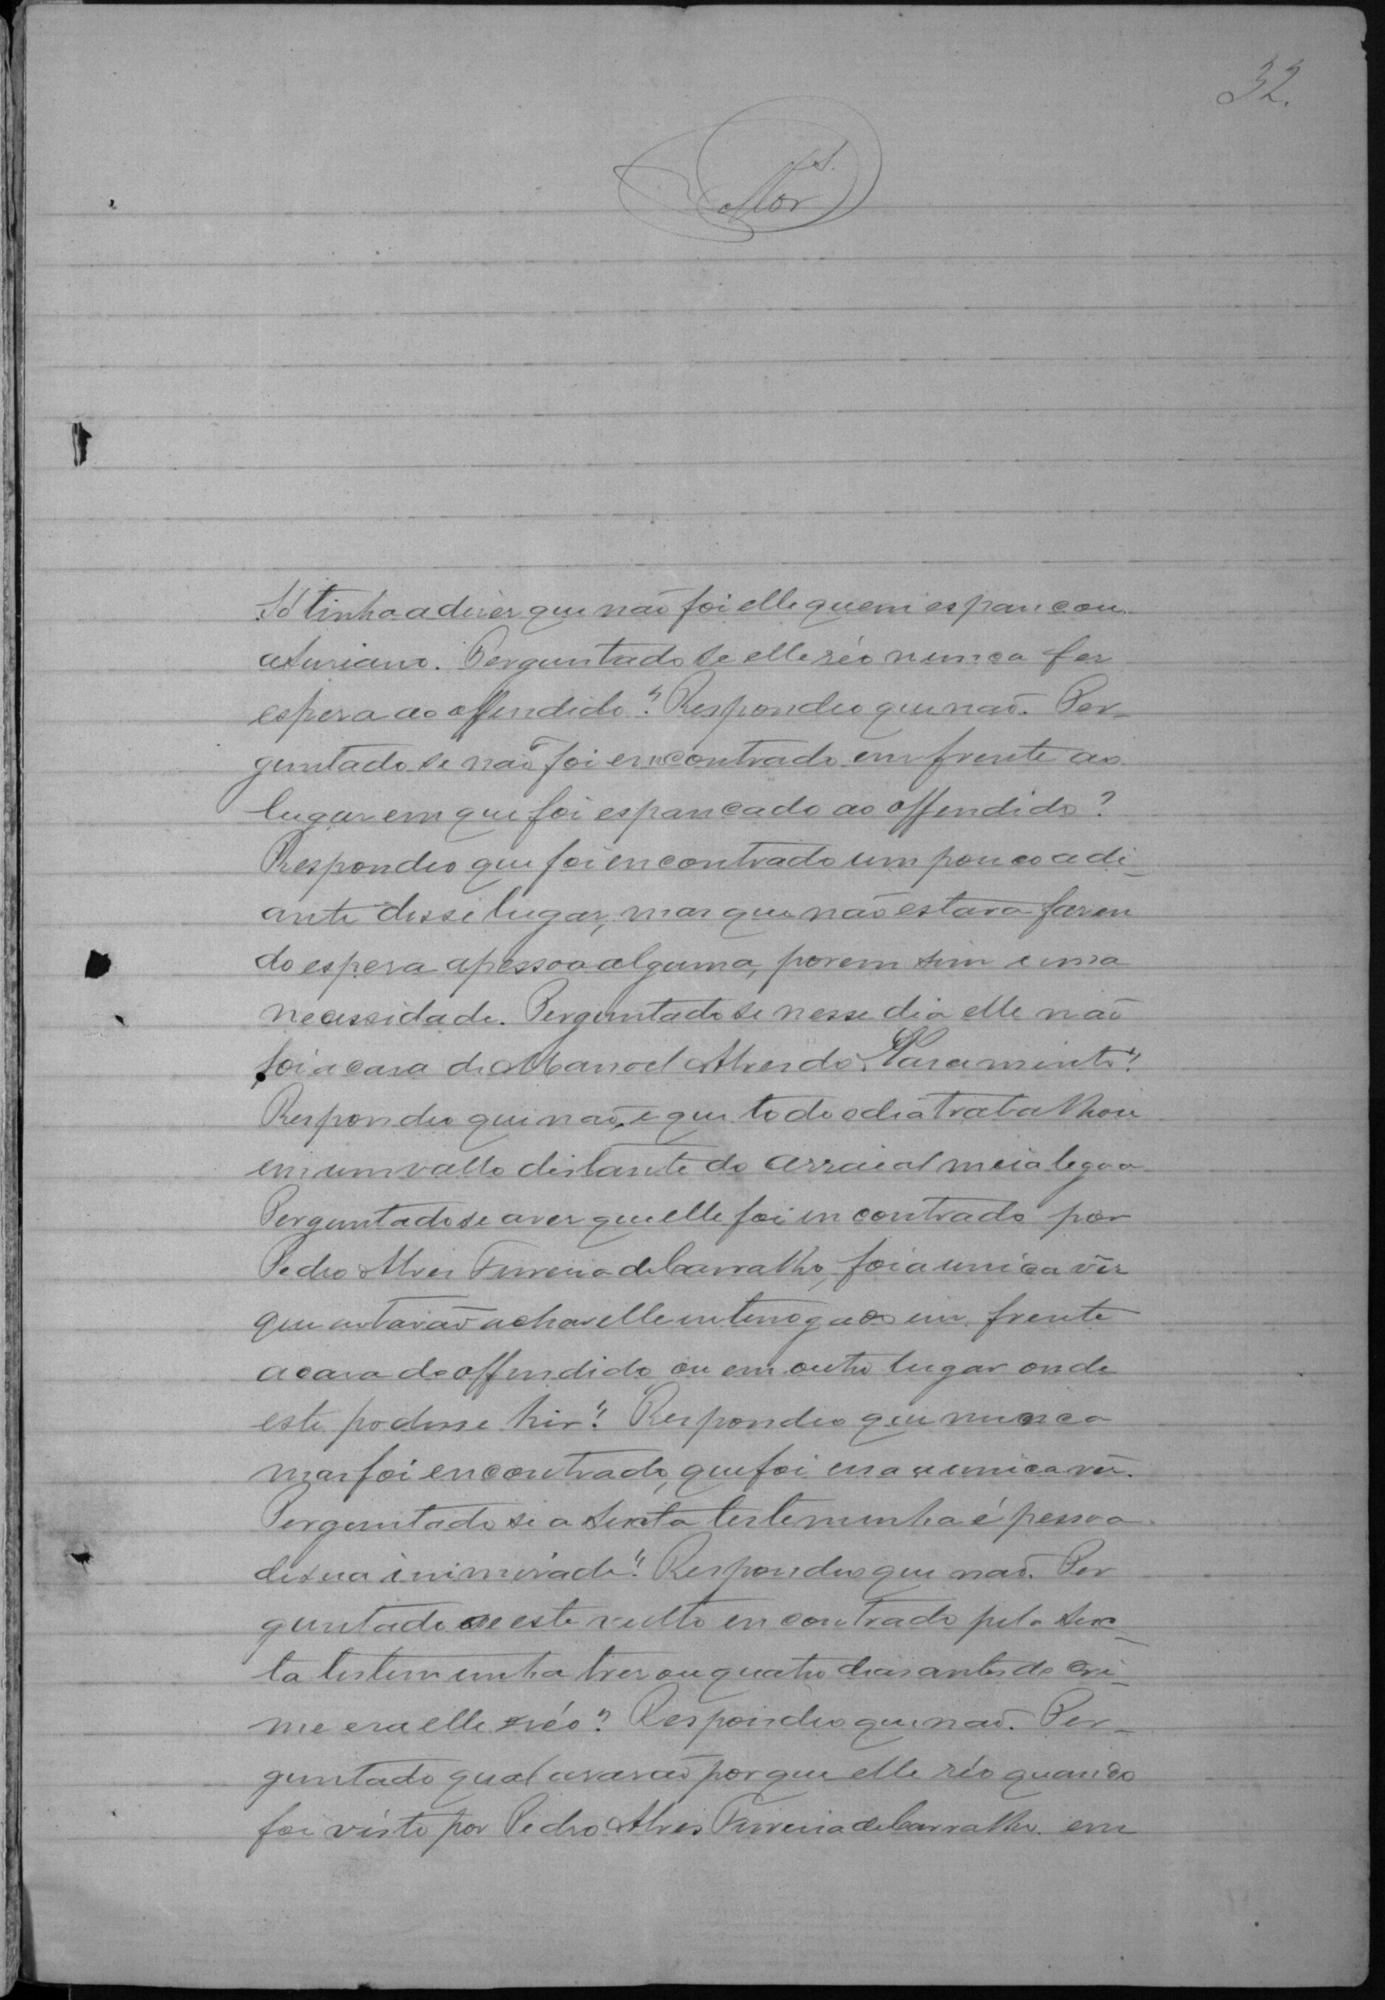 32.
Só tinha a dizer que não foi elle quem espancou
a Suriano. Perguntado se elle réo nunca fez
espera ao offendido? Respondeo que não. Per-
guntado se não foi encontrado em frente ao
lugar em que foi espancado ao offendido?
Respondeo que foi encontrado um pouco adi-
ante desse lugar, mas que não estava fazen
do espera a pessoa alguma, porem sim uma
necessidade. Perguntado se nesse dia elle não
foi a casa de Manoel Alves do Sacramento?
Respondeo que não, e que todo o dia trabalhou
em um vallo distante do arraial meia legoa
Perguntado se a vez que elle foi encontrado por
Pedro Alves Ferreira de Carvalho, foi a unica vêz
que estavão a char elle interrogado em frente
a casa do offendido ou em outro lugar onde
este podesse hir? Respondeo que nunca
mas foi encontrado, que foi essa a unica vez.
Perguntado se a sexta testemunha é pessoa
de sua inimizade? Respondeo que não. Per
guntado se este vulto encontrado pela sex-
ta testemunha tres ou quatro dias antes do cri-
me era elle réo? Respondeo que não. Per-
guntado qual a razão porque elle réo quando
foi visto por Pedro Alves Ferreira de Carvalho em